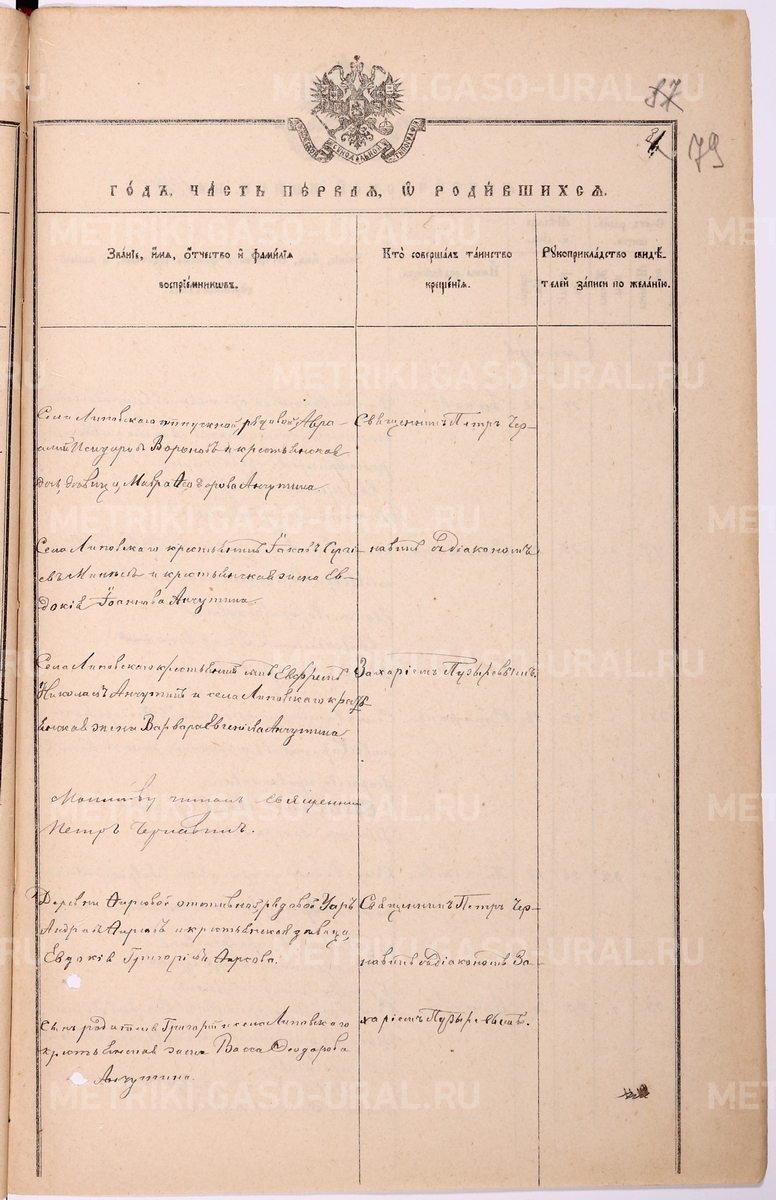 METRIKI.GASO-URAL.RU
87
81
79
СѴНОДАЛЬНОЙ
ГОДЪ, ЧАСТЬ ПЕРВАЯ, Ѡ РОДИВШИХСЯ.
Званіе, имя, отчество и фамилія
воспріемниковъ.
Кто совершалъ таинство
крещенія.
Рукоприкладство свидѣ-
телей записи по желанію.
Села Липовскаго отпускной рядовой Авра-
амій Исидоровъ Вороновъ и крестьянская
дочь, дѣвица, Мавра Ѳеодорова Анчутина.
Священникъ Петръ Чер-
Села Липовскаго крестьянинъ Іаковъ Сергі-
евъ и крестьянская жена Ев-
докія Іоаннова Анчутина.
навинъ съ діакономъ
Села Липовскаго крестьянинъ сынъ
Николаевъ Анчутинъ и села Липовскаго крестья
янская жена Варвара Евгеніева Анчутина.
Захаріемъ Пузыревымъ.
Молитву читалъ священникъ
Петръ Чернавинъ.
Деревни рядовой Уаръ
Андреевъ и крестьянская дѣвица,
Евдокія Григоріева
Священникъ Петръ Чер-
навинъ съ діакономъ За
Сынъ родителя Григорій и села Липовскаго
крестьянская жена Васса Ѳеодорова
Анчутина.
харіемъ Пузыревымъ.